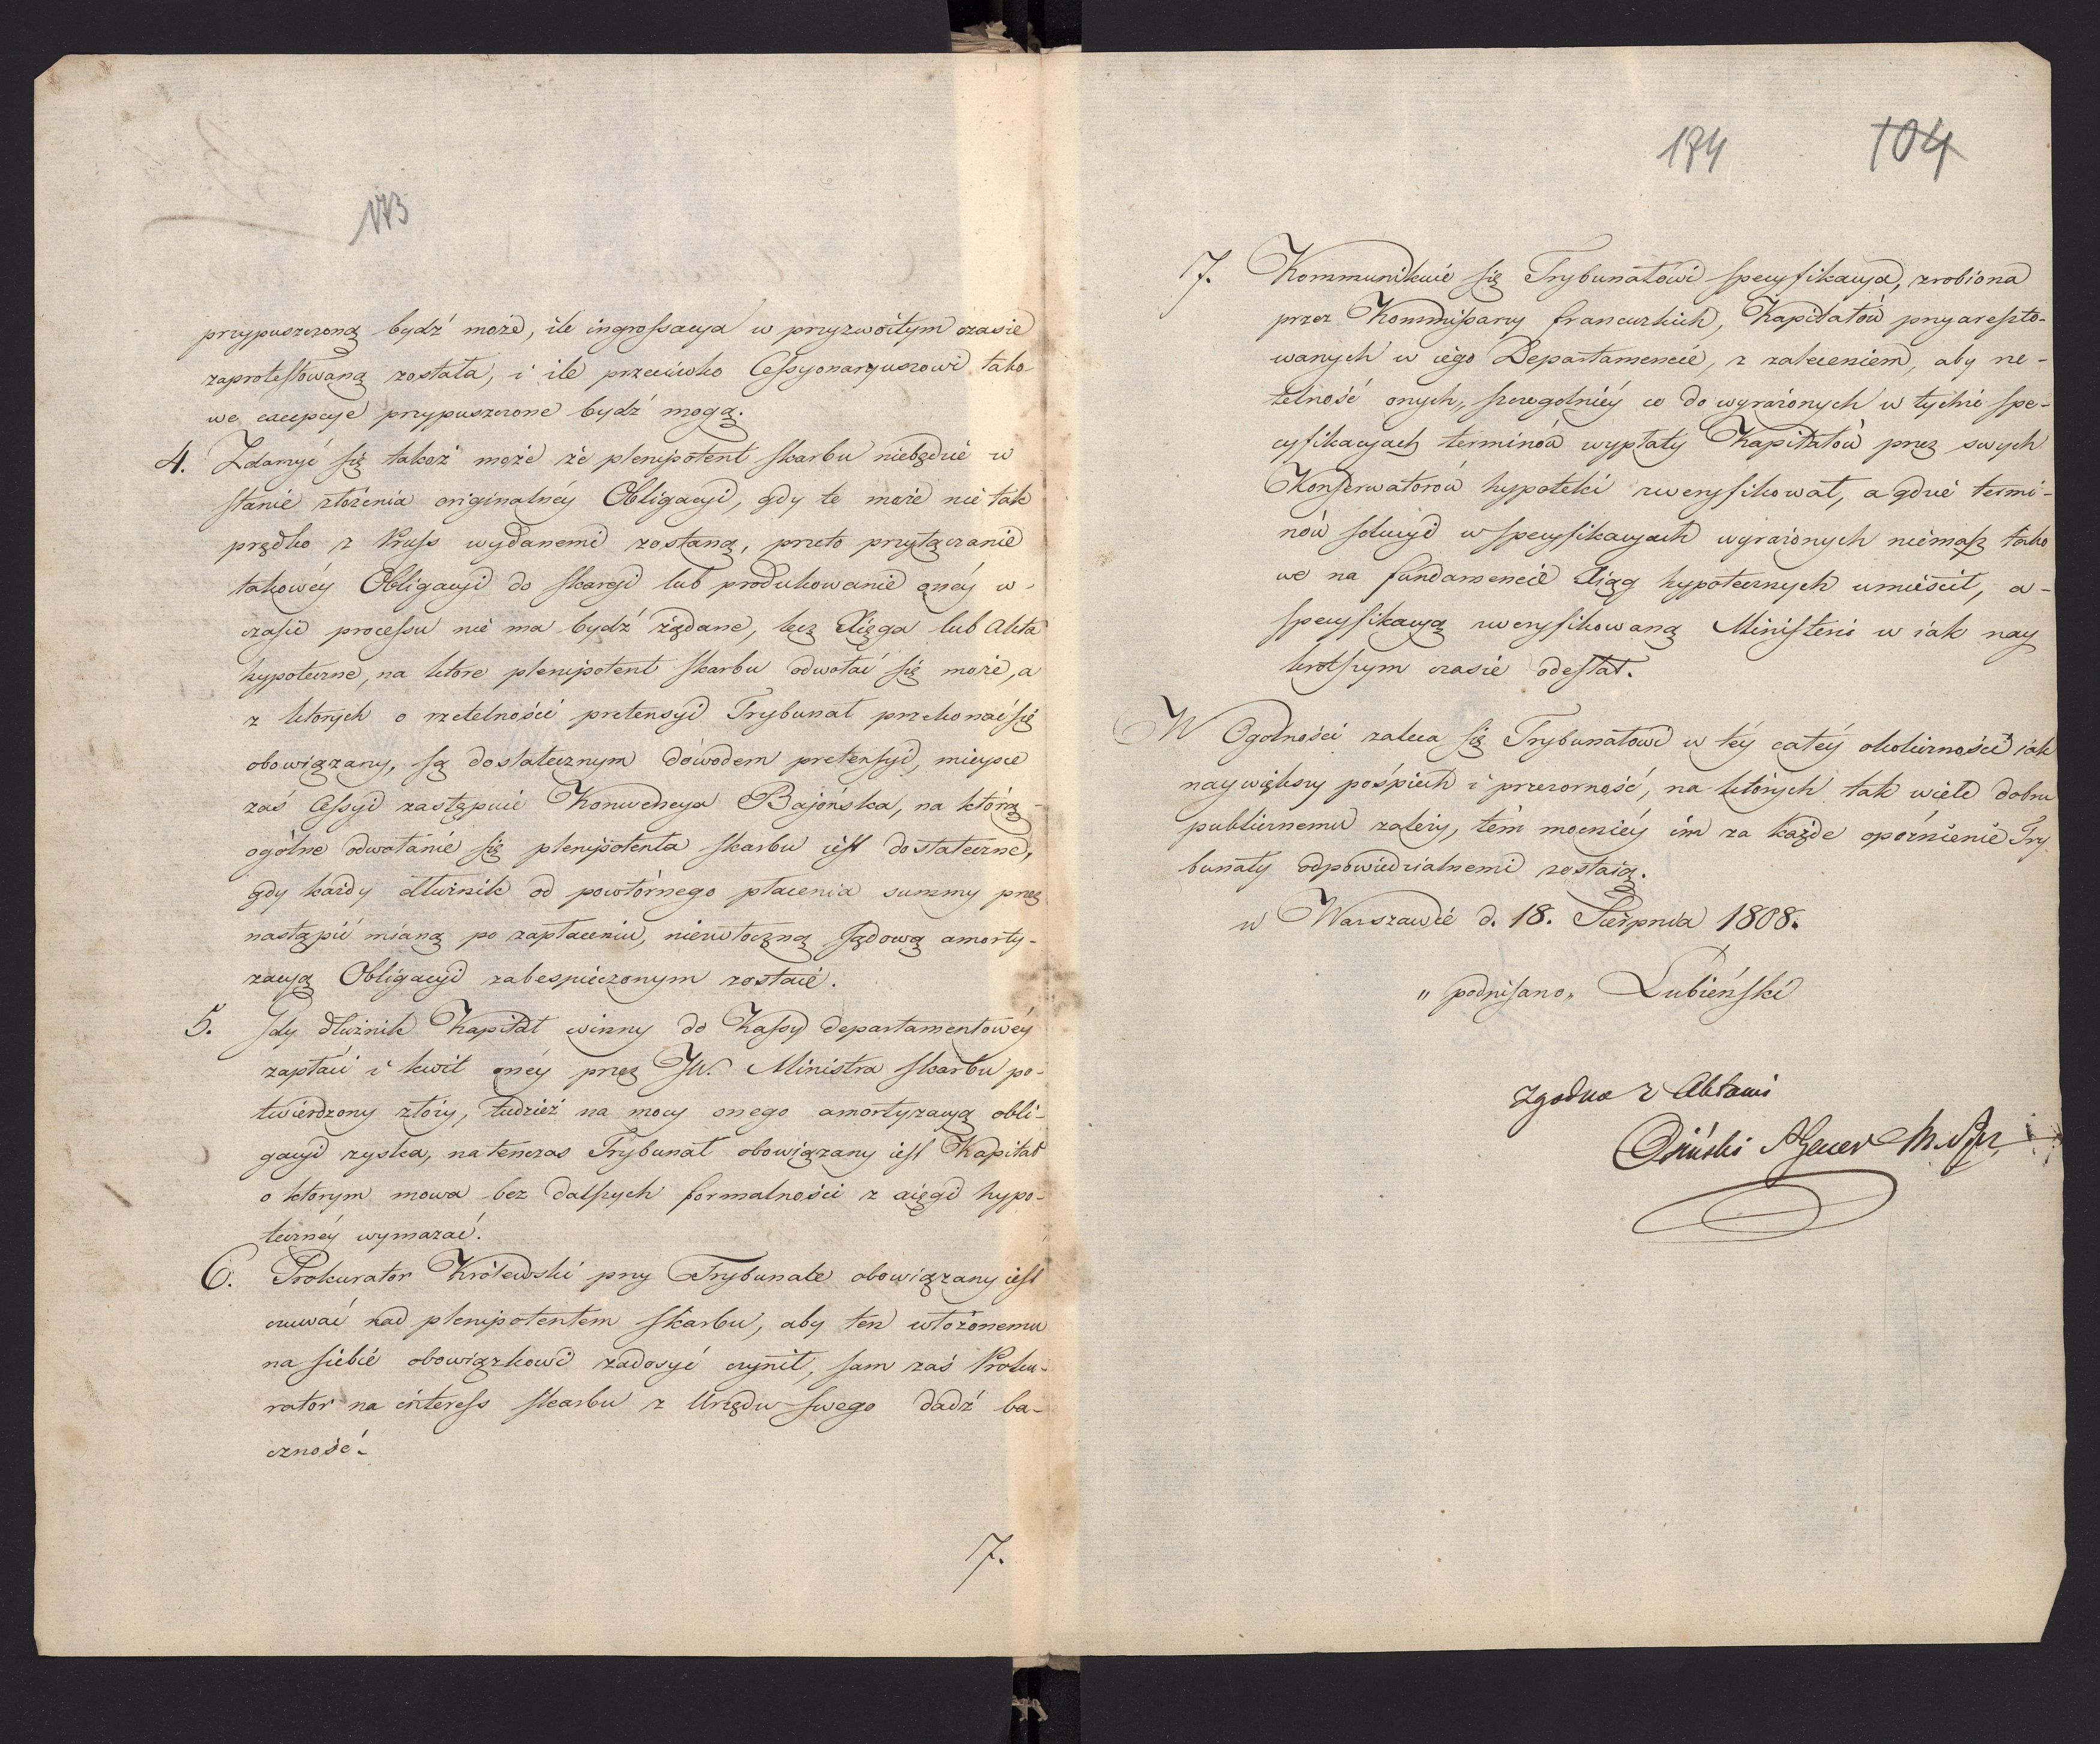 173
przypuszczoną bydź może, ile ingrossacya w przyzwoitym czasie
zaprotestowaną została, i ile przeciwko Cessyonaryuszowi tako
we excepcye przypuszczone bydź mogą.
4. Zdarzyć się takoż może że plenipotent skarbu niebędzie w
stanie złożenia originalnéy Obligacyi, gdy te może nie tak
prędko z Pruss wydanemi zostaną, przeto przyłączanie
takowéy Obligacyi do skargi lub produkowanie onéy w
czasie processu nie ma bydź żądane, lecz Xięga lub Akta
hypoteczne, na które plenipotent skarbu odwołać się może, a
z których o rzetelności pretensyi Trybunał przekonać się
obowiązany, są dostatecznym dowodem pretensyi, mieysce
zaś Cessyi zastępuie Konwencya Bajońska, na którą
ogólne odwołanie się plenipotenta skarbu iest dostateczne,
gdy każdy dłużnik od powtórnego płacenia summy przez
nastąpić mianą po zapłaceniu, niezwłoczną sądową amorty-
zacyą Obligacyi zabespieczonym zostaie.
5. Gdy dłużnik Kapitał winny do Kassy departamentowéy
zapłaci i kwit onéy przez JW. Ministra skarbu po-
twierdzony złoży, tudzież na mocy onego amortyzacyą obli-
gacyi zyska, natenczas Trybunał obowiązany iest Kapitał
o którym mowa bez dalszych formalności z xięgi hypo-
tecznéy wymazać.
6. Prokurator Królewski przy Trybunale obowiązany iest
czuwać nad plenipotentem skarbu, aby ten włożonemu
na siebie obowiązkowi zadosyć czynił, sam zaś Proku-
rator na interess skarbu z Urzędu swego dadź ba-
czność.
7.
174 104
7. Kommunikuie się Trybunałowi specyfikacya, zrobiona
przez Kommissarzy francuzkich, Kapitałów przyareszto-
wanych w iego Departamencie, z zaleceniem, aby rze-
telność onych, szczególniéy co do wyrażonych w tychże spe-
cyfikacyach terminów wypłaty Kapitałów przez swych
Konserwatorów hypoteki zweryfikował, a gdzie termi-
nów solucyi w specyfikacyach wyrażonych niemasz tako
we na fundamencie Xiąg hypotecznych umieścił, a
specyfikacyą zweryfikowaną Ministeri w iak nay
krotszym czasie odesłał.
W Ogolności zaleca się Trybunałowi w téy całéy okoliczności iak
naywiększy pośpiech i przezorność, na których tak wiele dobru
publicznemu zależy, tém mocniéy im za każde opóźnienie Try
bunały odpowiedzialnemi zostaią.
w Warszawie d. 18. Sierpnia 1808.
„ podpisano „ Łubieński
Zgodno z Aktami
Osiński